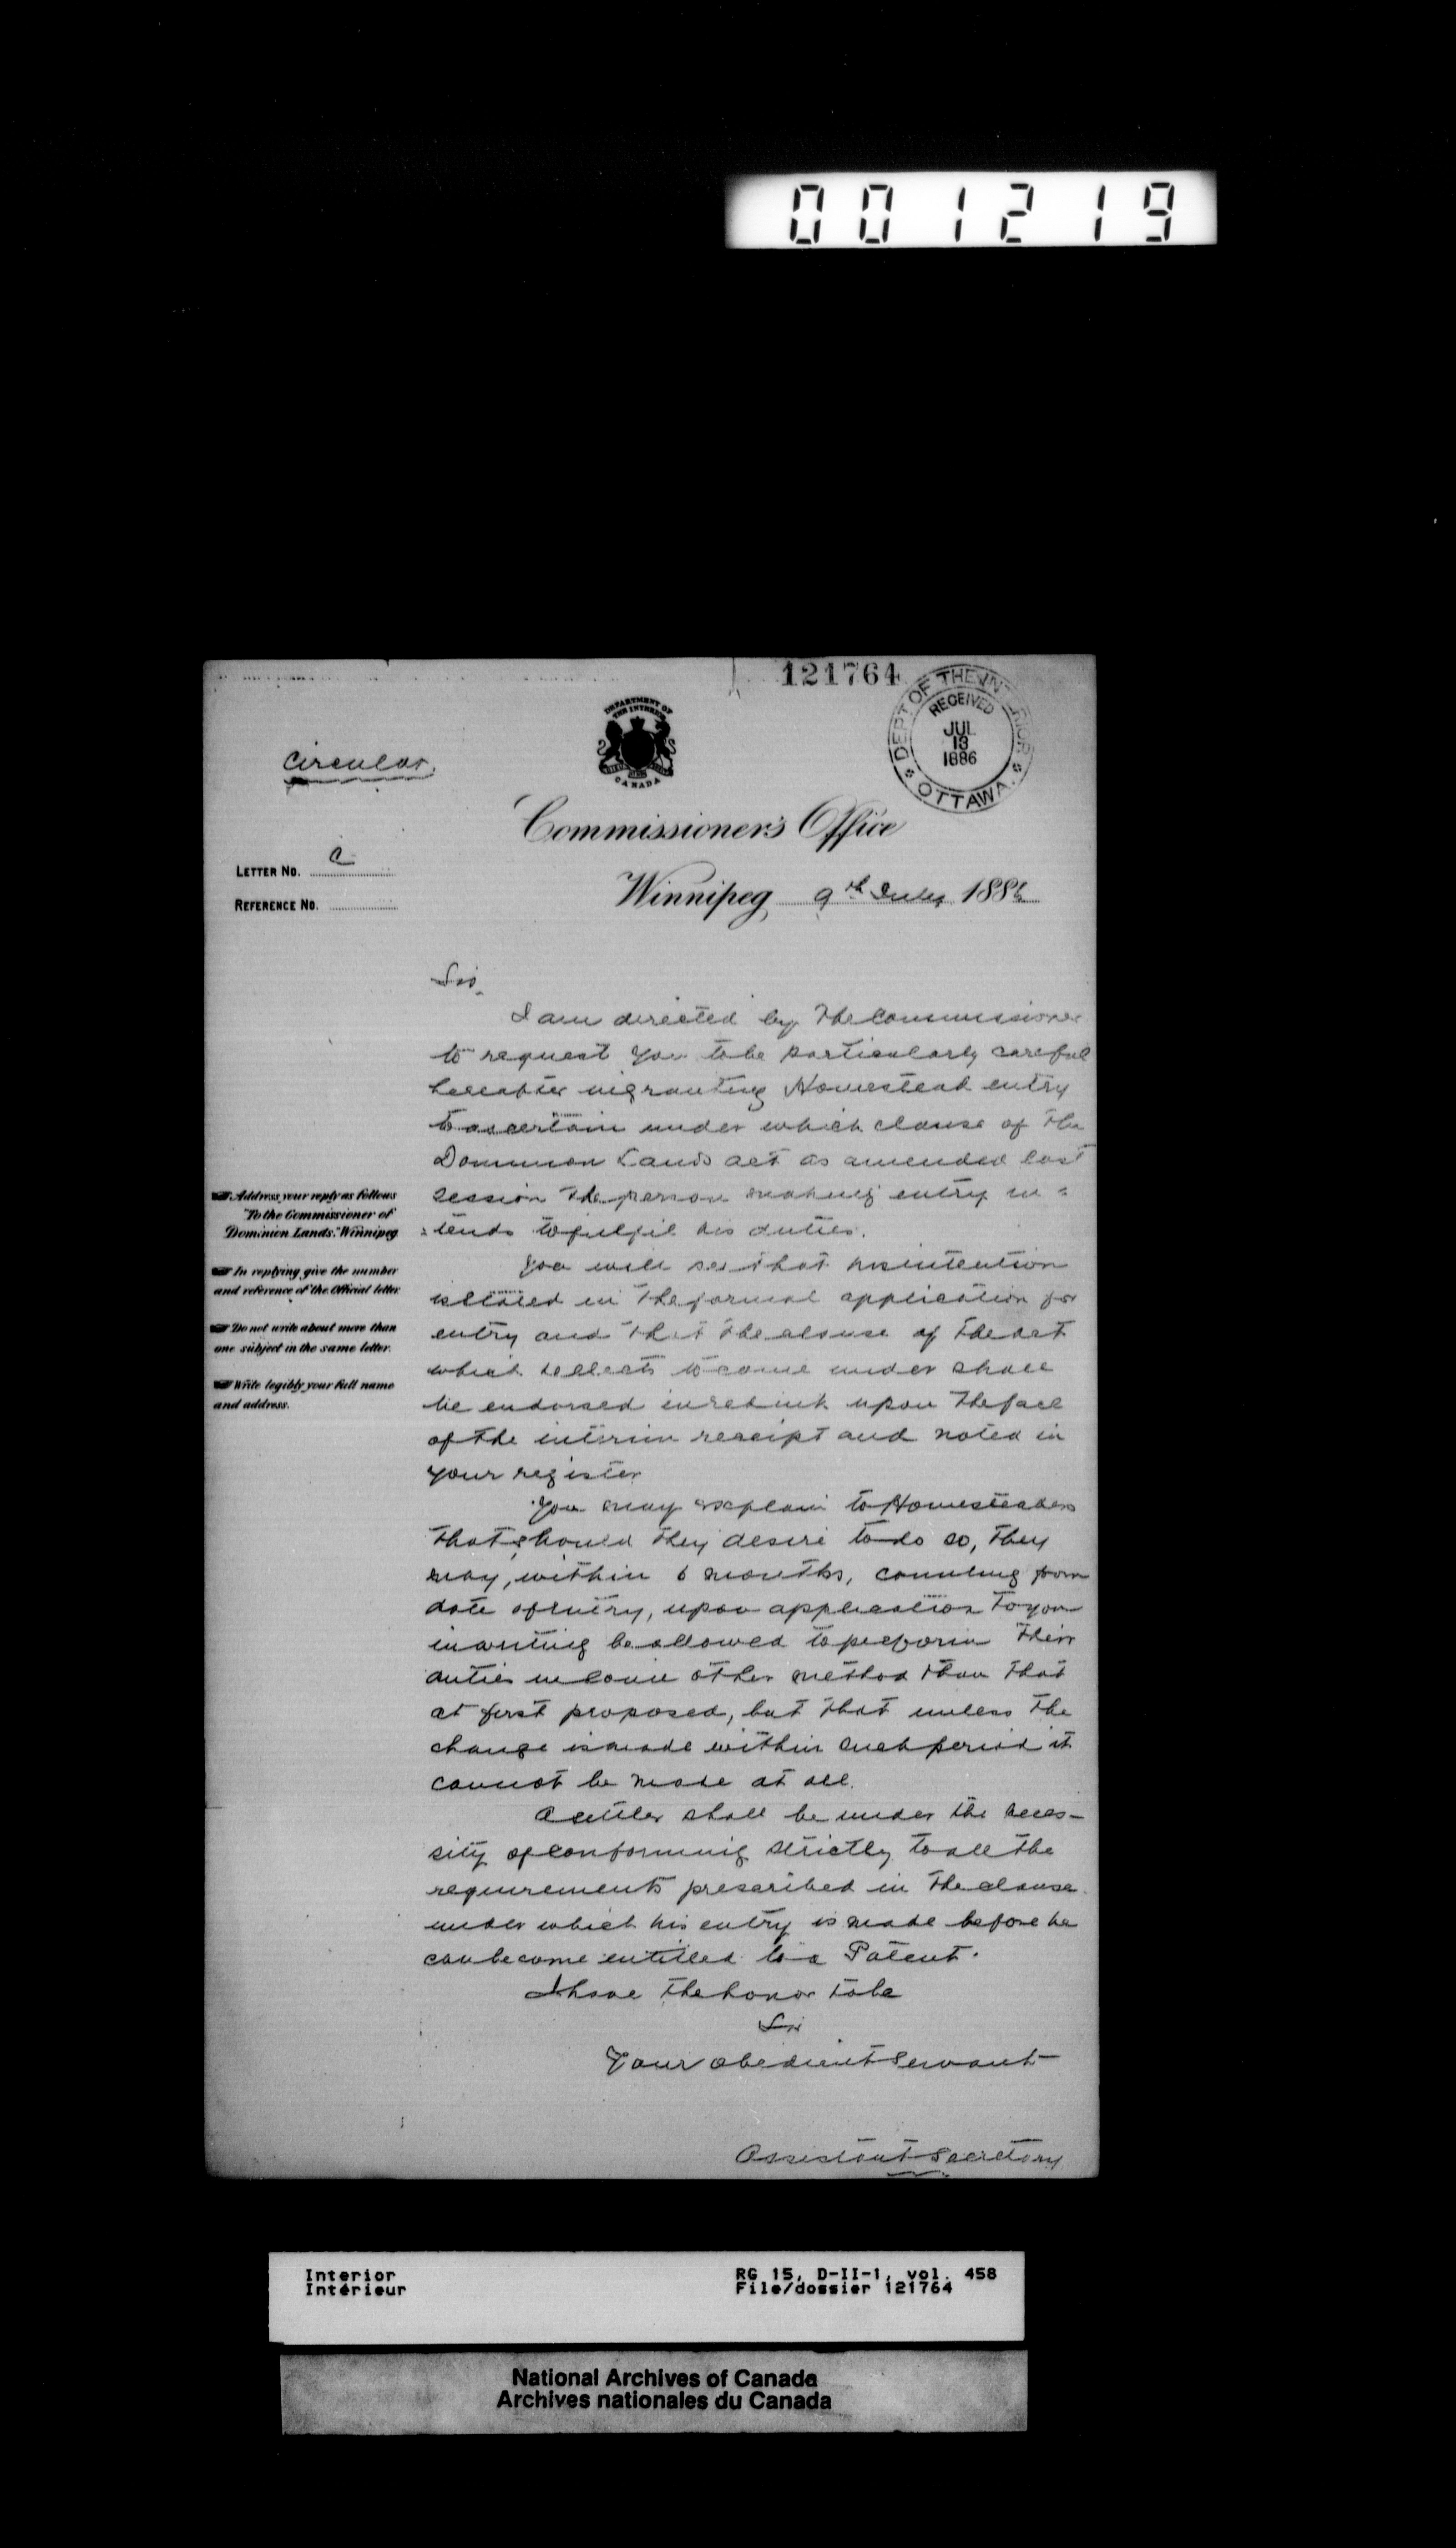 001219
121764
DEPT OF THE INTERIOR
RECEIVED
JUL
13
1886
OTTAWA.
DEPARTMENT OF
THE INTERIOR
CANADA
Circular.
Commissioner's Office
LETTER No. C
Winnipeg, 9th July 1886
REFERENCE No.
Sir,
I am directed by the Commissioner
to request you to be particularly careful
hereafter in granting Homestead entry
to ascertain under which clause of the
Dominion Lands act as amended last
session the person making entry in=
=tends to fulfil his duties.
You will see that his intention
is stated in the formal application for
entry and that the clause of the act
which he elects to come under shall
be endorsed in red ink upon the face
of the interim receipt and noted in
your register
You may explain to Homesteaders
that should they desire to do so, they
may, within 6 months, counting from
date of entry, upon application to you
in writing be allowed to perform their
duties in some other method than that
at first proposed, but that unless the
change is made within such period it
cannot be made at all.
A settler shall be under the neces-
sity of conforming strictly to all the
requirements prescribed in the clause
under which his entry is made before he
can become entitled to a Patent.
I have the honor to be
Sir
Your obedient servant
Assistant Secretary
Address your reply as follows
"To the Commissioner of
Dominion Lands." Winnipeg
In replying give the number
and reference of the Official letter
Do not write about more than
one subject in the same letter.
Write legibly your full name
and address.
Interior
Intérieur
RG 15, D-II-1, vol. 458
File/dossier 121764
National Archives of Canada
Archives nationales du Canada